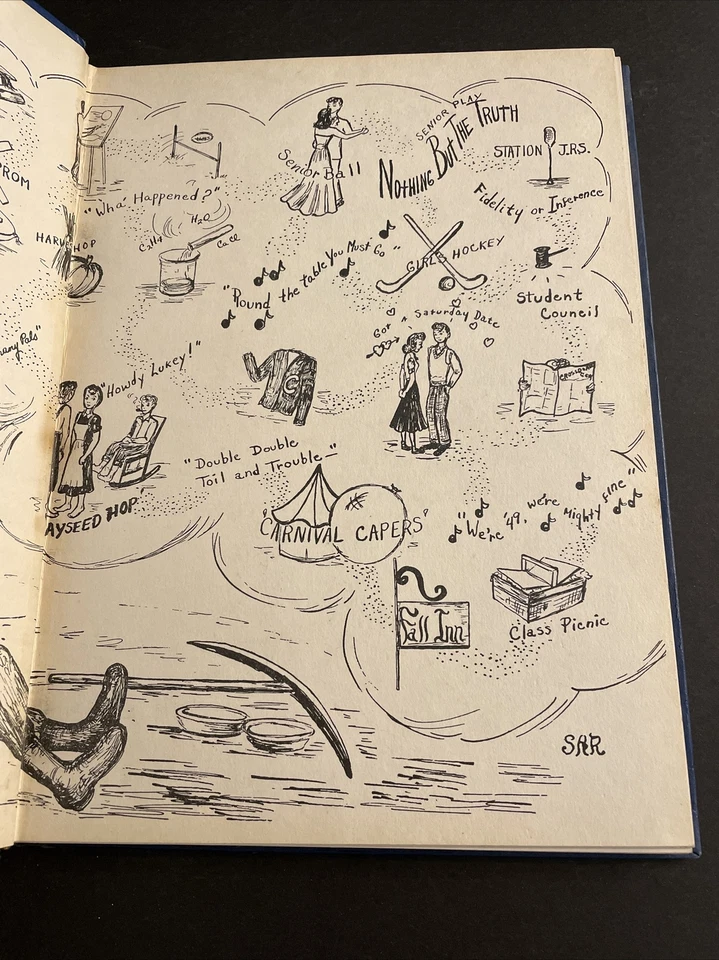 SENIOR PLAY
NOTHING BUT THE TRUTH
STATION J.R.S.
Senior Ball
PROM
"Wha' Happened?"
Fidelity or Inference
H2O
C2H4
CaCl
HARV HOP
GIRLS HOCKEY
"'Round the table You Must Go"
Student
Council
Got a Saturday Date
many Pals"
"Howdy Lukey!"
C
"Double Double
Toil and Trouble—"
AYSEED HOP
"CARNIVAL CAPERS"
"We're '49, we're Mighty Fine"
Fall Inn
Class Picnic
SAR